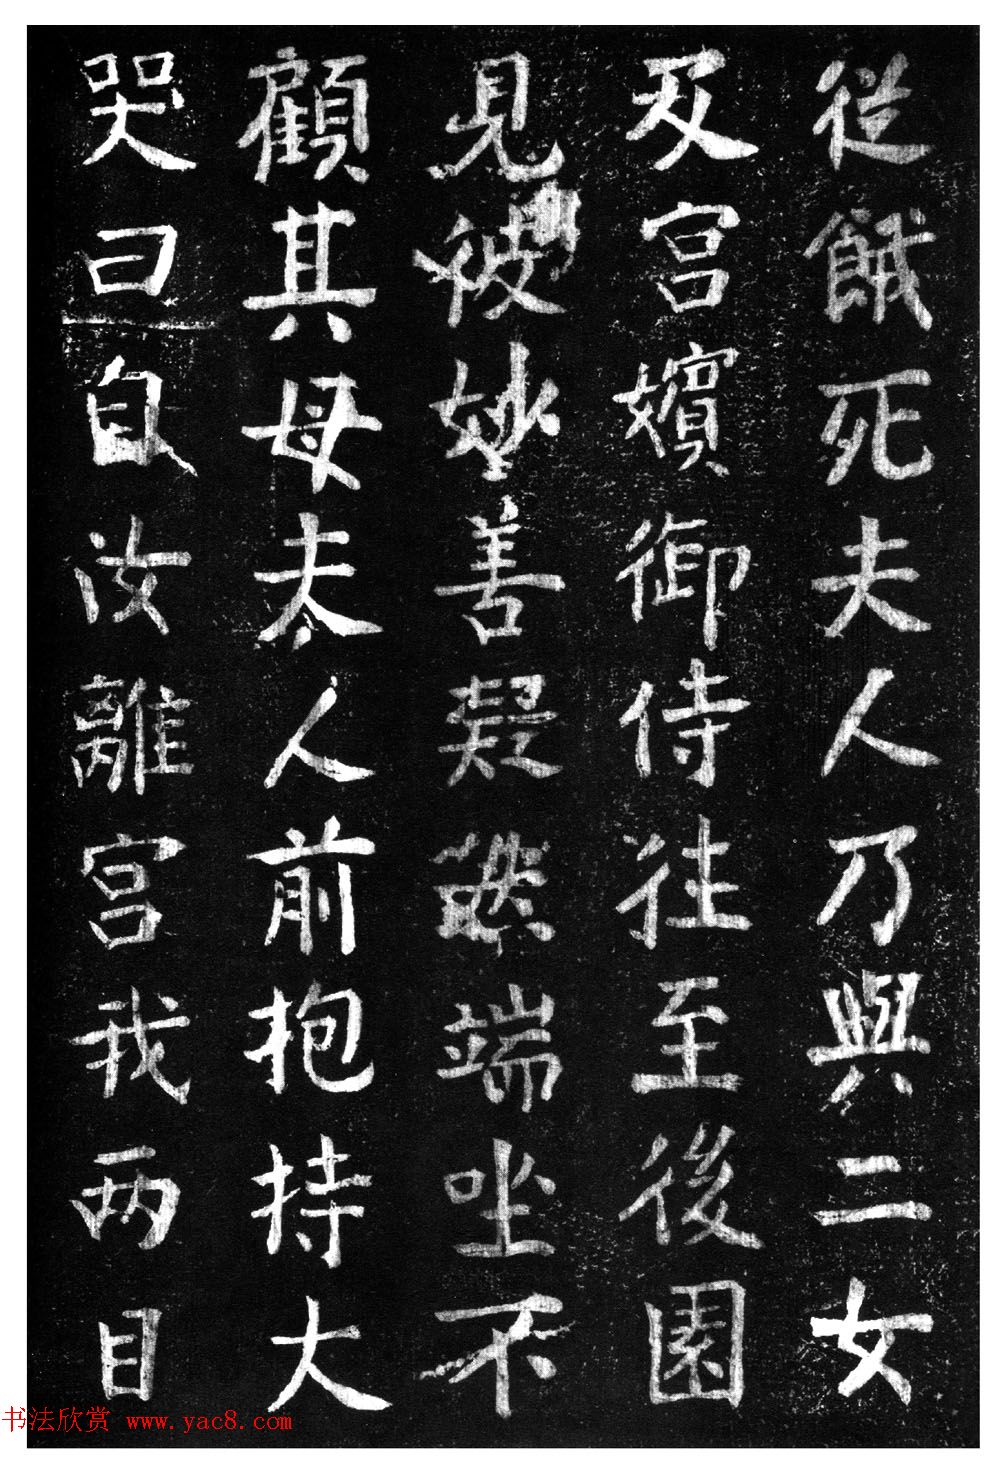 從餓死夫人乃與二女
及宮嬪御侍往至後園
見彼妙善凝然端坐不
顧其母夫人前抱持大
哭曰自汝離宮我两目
书法欣赏 www.yac8.com